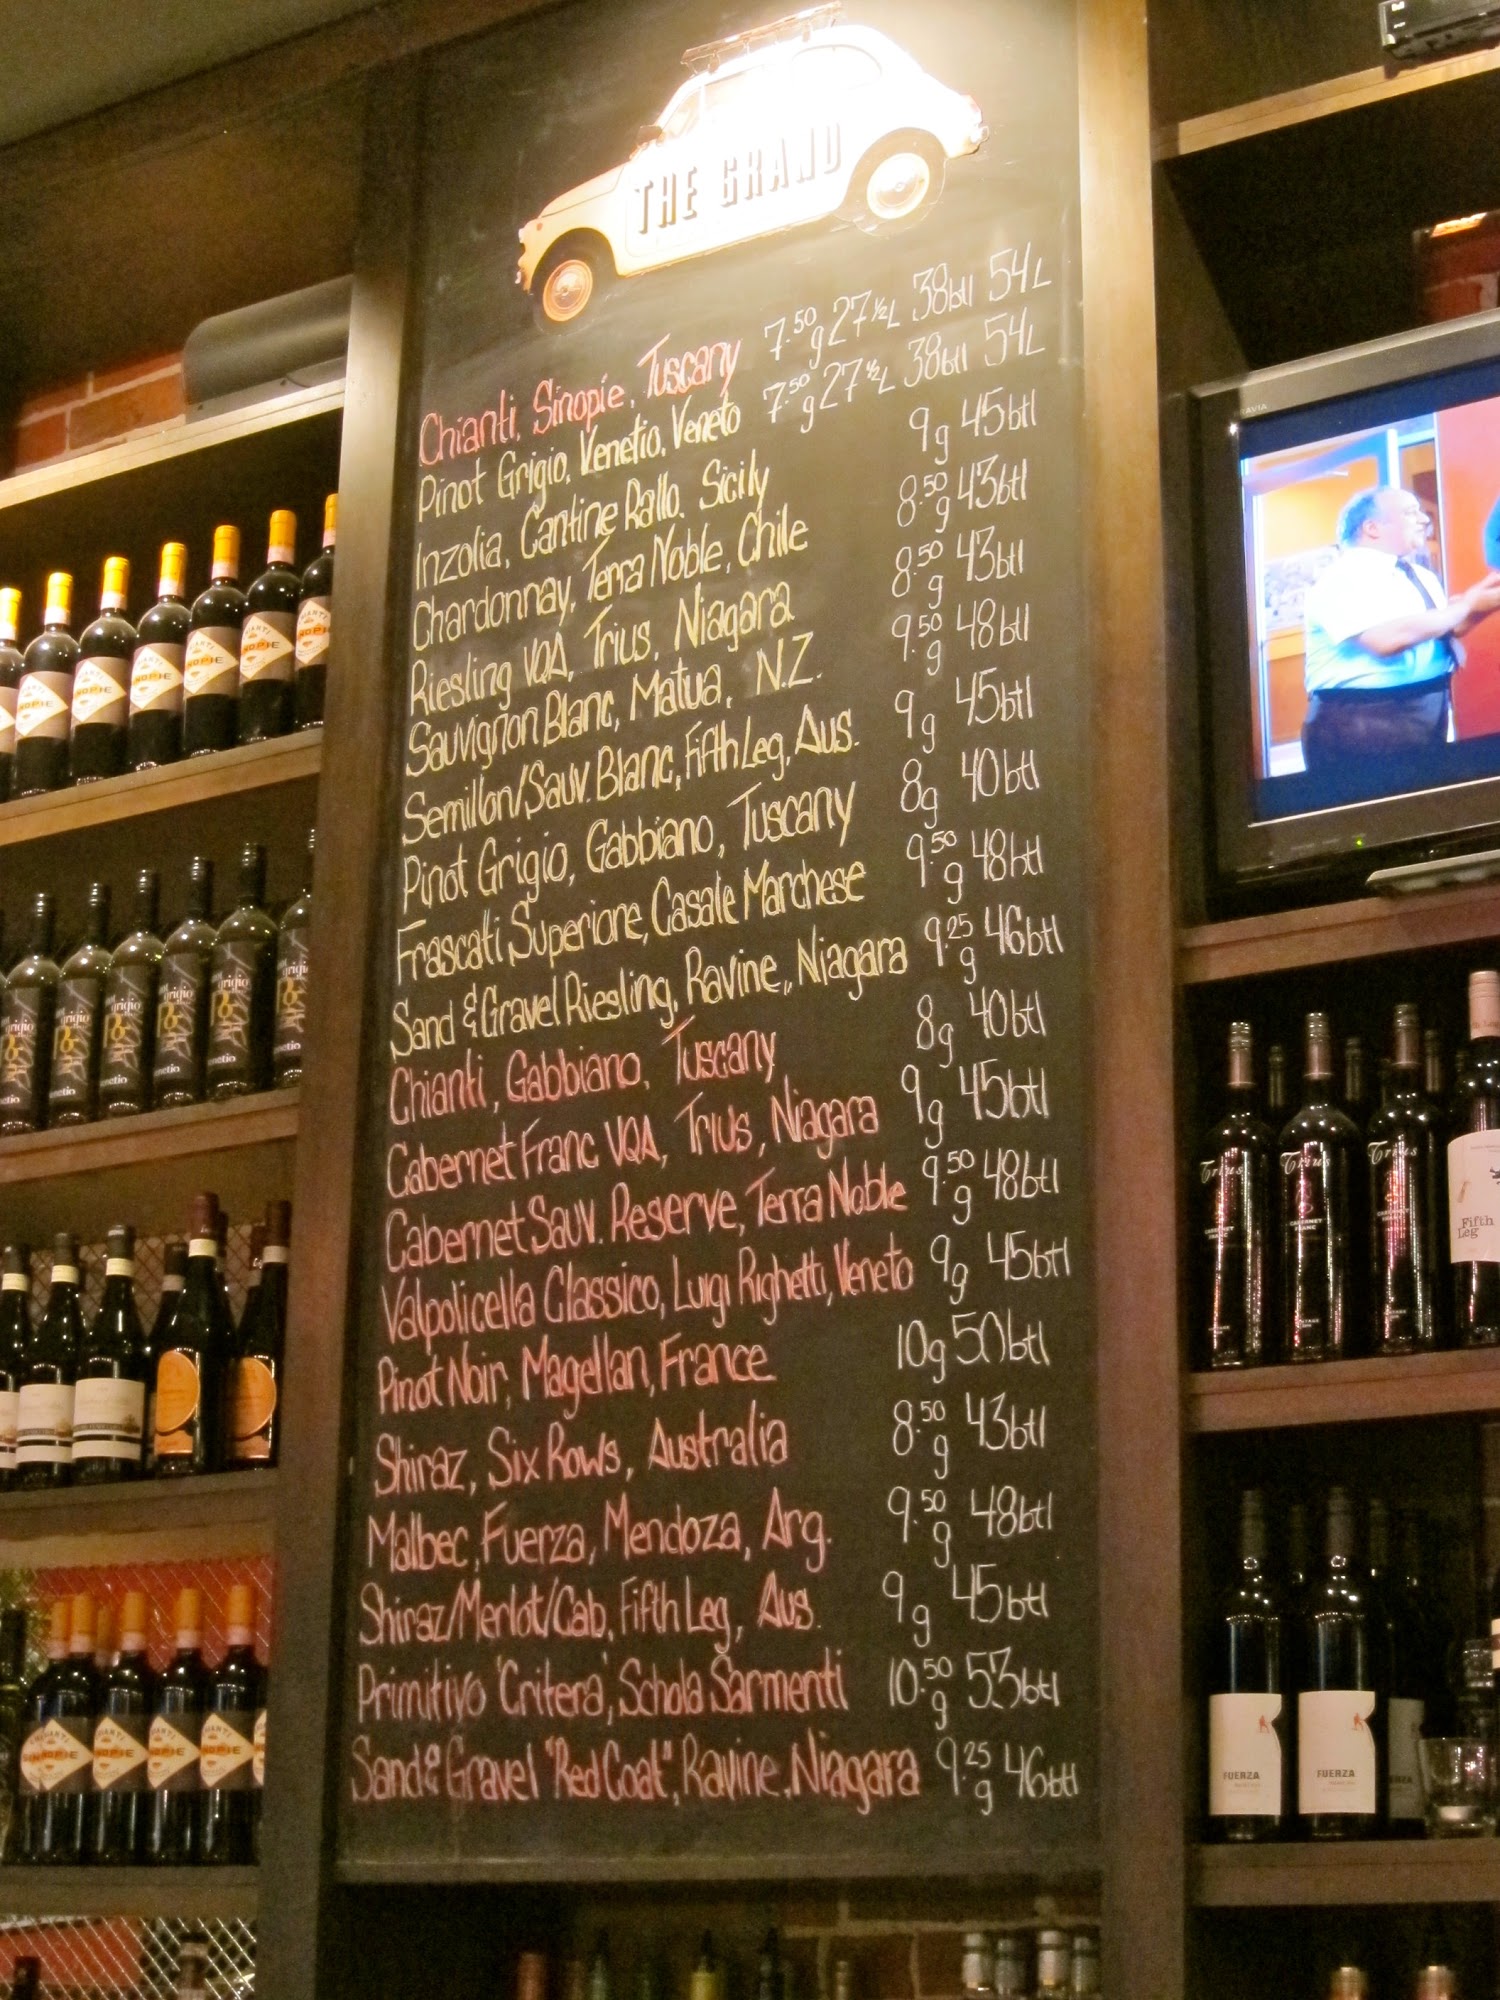 THE GRAND
Chianti, Sinopie, Tuscany 7.50g 27 1/2L 38btl 54L
Pinot Grigio, Venetio, Veneto 7.50g 27 1/2L 38btl 54L
Inzolia, Cantine Rallo, Sicily 9g 45btl
Chardonnay, Terra Noble, Chile 8.50g 43btl
Riesling VQA, Trius, Niagara 8.50g 43btl
Sauvignon Blanc, Matua, N.Z. 9.50g 48btl
Semillon/Sauv. Blanc, Fifth Leg, Aus. 9g 45btl
Pinot Grigio, Gabbiano, Tuscany 8g 40btl
Frascati Superiore, Casale Marchese 9.50g 48btl
Sand & Gravel Riesling, Ravine, Niagara 9.25g 46btl
Chianti, Gabbiano, Tuscany 8g 40btl
Cabernet Franc VQA, Trius, Niagara 9g 45btl
Cabernet Sauv. Reserve, Terra Noble 9.50g 48btl
Valpolicella Classico, Luigi Righetti, Veneto 9g 45btl
Pinot Noir, Magellan, France 10g 50btl
Shiraz, Six Rows, Australia 8.50g 43btl
Malbec, Fuerza, Mendoza, Arg. 9.50g 48btl
Shiraz/Merlot/Cab, Fifth Leg, Aus. 9g 45btl
Primitivo 'Critera', Schola Sarmenti 10.50g 53btl
Sand & Gravel "Red Coat", Ravine, Niagara 9.25g 46btl
CHIANTI
SINOPIE
grigio
venetio
Trius Trius Trius
CABERNET
FRANC
Fifth
Leg
FUERZA FUERZA